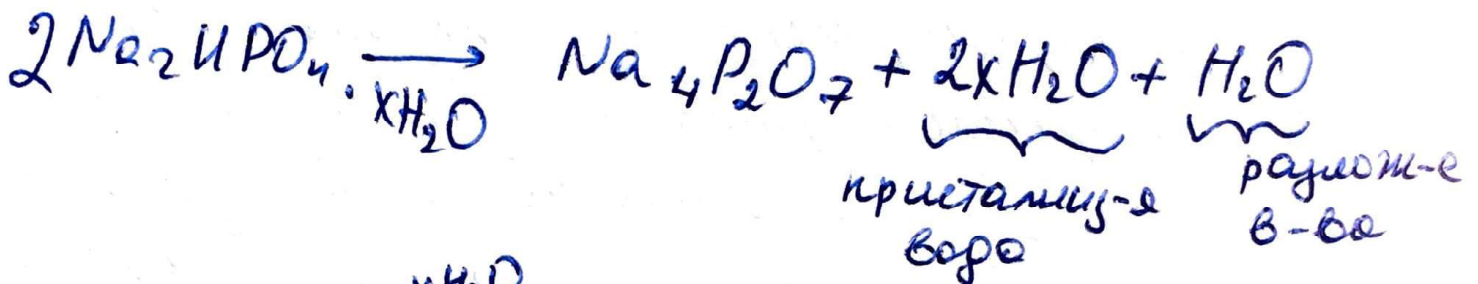 2Na₂HPO₄ · xH₂O ⟶ Na₄P₂O₇ + 2xH₂O + H₂O
кристаллиз-я разлож-е
вода в-ва
xH₂O